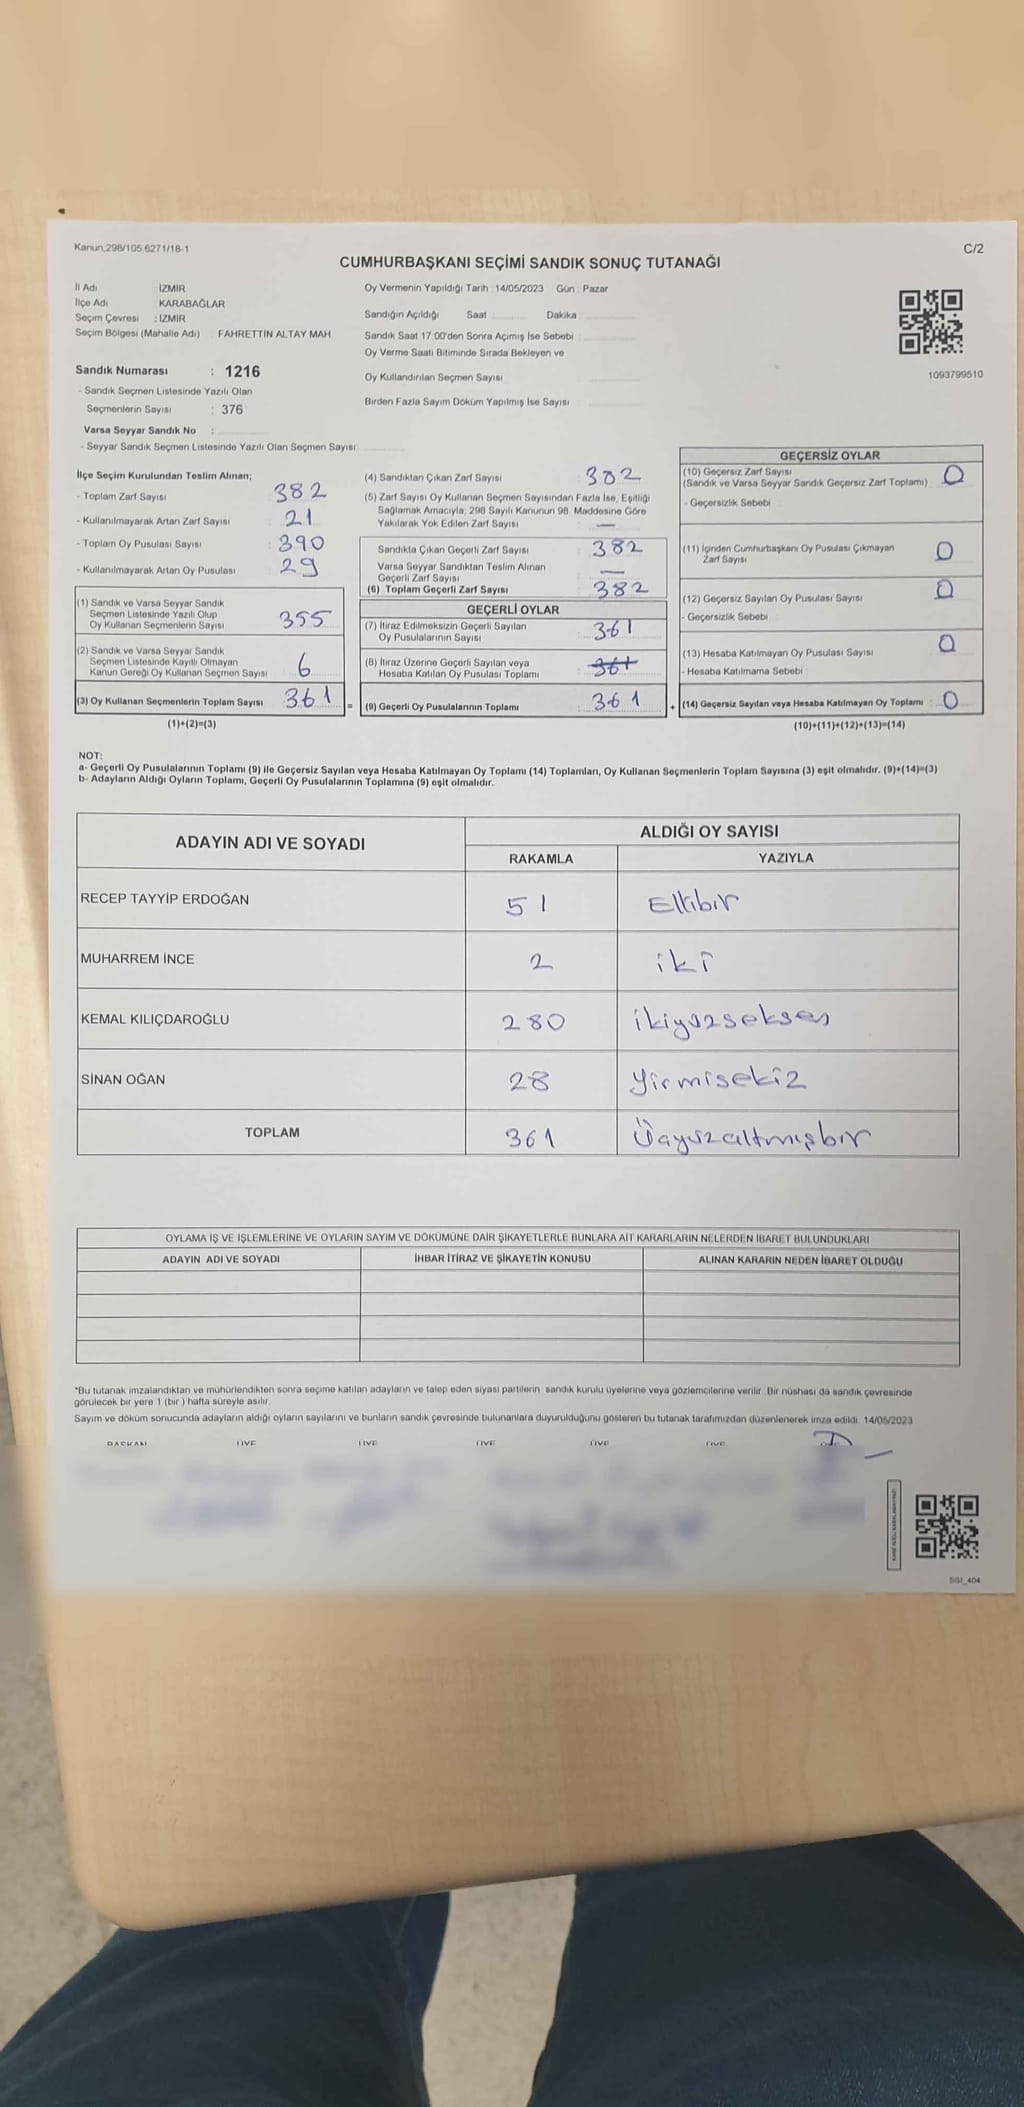 Kanun;298/105 6271/18-1
C/2
CUMHURBAŞKANI SEÇİMİ SANDIK SONUÇ TUTANAĞI
İl Adı : İZMİR
İlçe Adı : KARABAĞLAR
Seçim Çevresi : İZMİR
Seçim Bölgesi (Mahalle Adı) : FAHRETTİN ALTAY MAH.
Sandık Numarası : 1216
- Sandık Seçmen Listesinde Yazılı Olan
Seçmenlerin Sayısı : 376
Varsa Seyyar Sandık No :
- Seyyar Sandık Seçmen Listesinde Yazılı Olan Seçmen Sayısı
Oy Vermenin Yapıldığı Tarih : 14/05/2023 Gün : Pazar
Sandığın Açıldığı Saat Dakika
Sandık Saat 17:00'den Sonra Açımış İse Sebebi :
Oy Verme Saati Bitiminde Sırada Bekleyen ve
Oy Kullandırılan Seçmen Sayısı :
Birden Fazla Sayım Döküm Yapılmış İse Sayısı :
1093799510
İlçe Seçim Kurulundan Teslim Alınan;
- Toplam Zarf Sayısı : 382
- Kullanılmayarak Artan Zarf Sayısı : 21
- Toplam Oy Pusulası Sayısı : 390
- Kullanılmayarak Artan Oy Pusulası : 29
(1) Sandık ve Varsa Seyyar Sandık
Seçmen Listesinde Yazılı Olup
Oy Kullanan Seçmenlerin Sayısı : 355
(2) Sandık ve Varsa Seyyar Sandık
Seçmen Listesinde Kayıtlı Olmayan
Kanun Gereği Oy Kullanan Seçmen Sayısı : 6
(3) Oy Kullanan Seçmenlerin Toplam Sayısı : 361
(1)+(2)=(3)
(4) Sandıktan Çıkan Zarf Sayısı : 382
(5) Zarf Sayısı Oy Kullanan Seçmen Sayısından Fazla İse, Eşitliği
Sağlamak Amacıyla, 298 Sayılı Kanunun 98. Maddesine Göre
Yakılarak Yok Edilen Zarf Sayısı : —
Sandıkta Çıkan Geçerli Zarf Sayısı : 382
Varsa Seyyar Sandıktan Teslim Alınan
Geçerli Zarf Sayısı : —
(6) Toplam Geçerli Zarf Sayısı : 382
GEÇERLİ OYLAR
(7) İtiraz Edilmeksizin Geçerli Sayılan
Oy Pusulalarının Sayısı : 361
(8) İtiraz Üzerine Geçerli Sayılan veya
Hesaba Katılan Oy Pusulası Toplamı : 361
= (9) Geçerli Oy Pusulalarının Toplamı : 361
GEÇERSİZ OYLAR
(10) Geçersiz Zarf Sayısı
(Sandık ve Varsa Seyyar Sandık Geçersiz Zarf Toplamı) : 0
- Geçersizlik Sebebi :
(11) İçinden Cumhurbaşkanı Oy Pusulası Çıkmayan
Zarf Sayısı : 0
(12) Geçersiz Sayılan Oy Pusulası Sayısı : 0
- Geçersizlik Sebebi :
(13) Hesaba Katılmayan Oy Pusulası Sayısı : 0
- Hesaba Katılmama Sebebi :
+ (14) Geçersiz Sayılan veya Hesaba Katılmayan Oy Toplamı : 0
(10)+(11)+(12)+(13)=(14)
NOT:
a- Geçerli Oy Pusulalarının Toplamı (9) ile Geçersiz Sayılan veya Hesaba Katılmayan Oy Toplamı (14) Toplamları, Oy Kullanan Seçmenlerin Toplam Sayısına (3) eşit olmalıdır. (9)+(14)=(3)
b- Adayların Aldığı Oyların Toplamı, Geçerli Oy Pusulalarının Toplamına (9) eşit olmalıdır.
ADAYIN ADI VE SOYADI ALDIĞI OY SAYISI
RAKAMLA YAZIYLA
RECEP TAYYİP ERDOĞAN 51 Ellibir
MUHARREM İNCE 2 iki
KEMAL KILIÇDAROĞLU 280 ikiyüzseksen
SİNAN OĞAN 28 Yirmisekiz
TOPLAM 361 Üçyüzaltmışbir
OYLAMA İŞ VE İŞLEMLERİNE VE OYLARIN SAYIM VE DÖKÜMÜNE DAİR ŞİKAYETLERLE BUNLARA AİT KARARLARIN NELERDEN İBARET BULUNDUKLARI
ADAYIN ADI VE SOYADI İHBAR İTİRAZ VE ŞİKAYETİN KONUSU ALINAN KARARIN NEDEN İBARET OLDUĞU
*Bu tutanak imzalandıktan ve mühürlendikten sonra seçime katılan adayların ve talep eden siyasi partilerin sandık kurulu üyelerine veya gözlemcilerine verilir. Bir nüshası da sandık çevresinde
görülecek bir yere 1 (bir ) hafta süreyle asılır.
Sayım ve döküm sonucunda adayların aldığı oyların sayılarını ve bunların sandık çevresinde bulunanlara duyurulduğunu gösteren bu tutanak tarafımızdan düzenlenerek imza edildi. 14/05/2023
BAŞKAN ÜYE ÜYE ÜYE ÜYE ÜYE
SSI_404